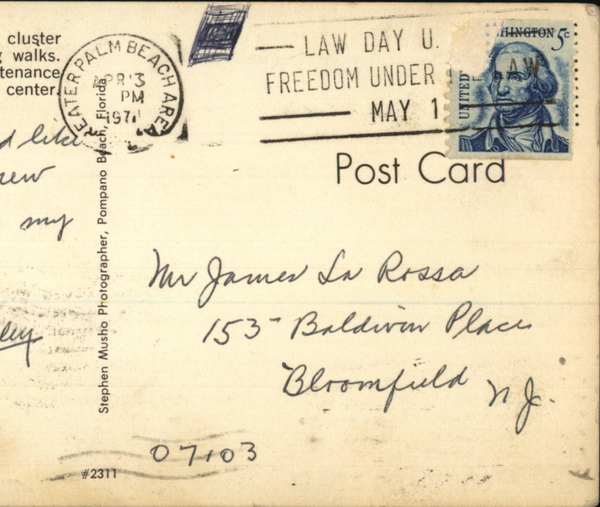 cluster
walks.
tenance
center.
EATER PALM BEACH AREA
APR 13
PM
1971
LAW DAY U.
FREEDOM UNDER LAW
MAY 1
HINGTON 5c
UNITED
Post Card
d like
my
Stephen Musho Photographer, Pompano Beach, Florida
Mr James La Rossa
153 Baldwin Place
Bloomfield N.J.
07103
#2311